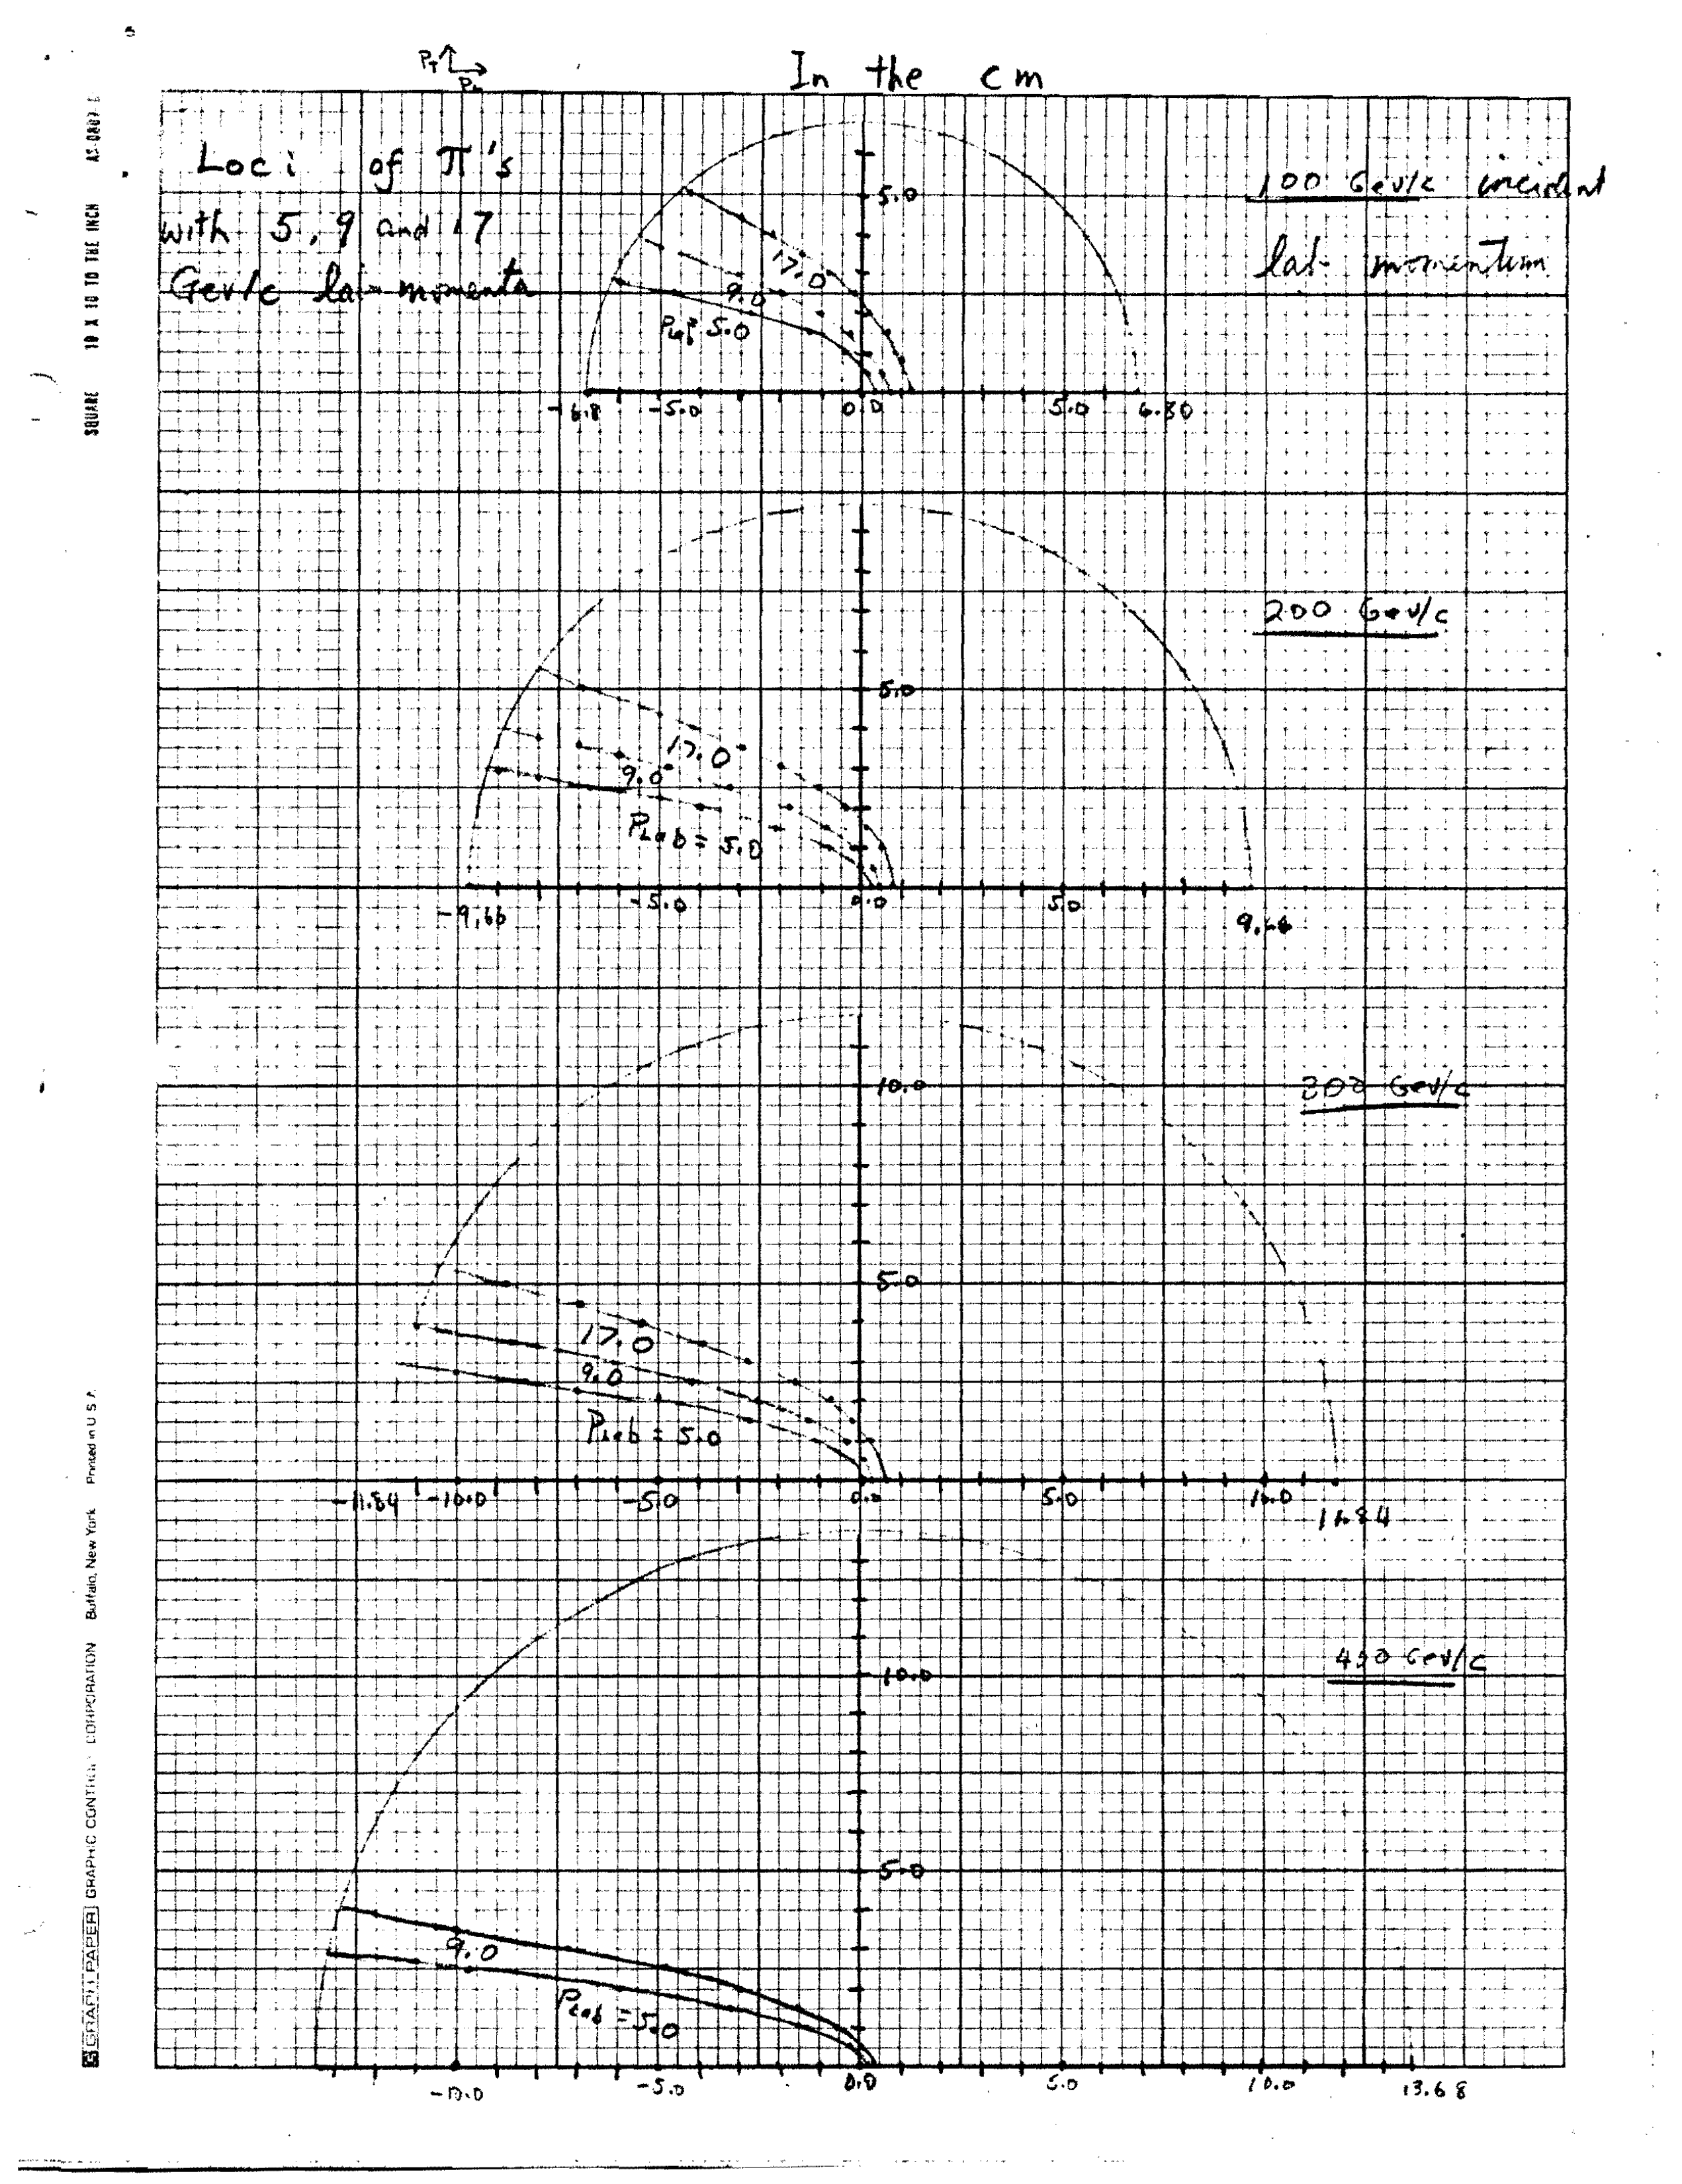 PT
In the cm
Loci of π's
with 5, 9 and 17
Gev/c lab momenta
100 Gev/c incident
lab momentum
5.0
17.0
9.0
PLab = 5.0
-6.8 -5.0 0.0 5.0 6.80
200 Gev/c
5.0
17.0
9.0
PLab = 5.0
-9.66 -5.0 0.0 5.0 9.66
10.0
300 Gev/c
5.0
17.0
9.0
PLab = 5.0
-11.84 -10.0 -5.0 0.0 5.0 10.0 11.84
10.0
400 Gev/c
5.0
9.0
PLab = 5.0
-10.0 -5.0 0.0 5.0 10.0 13.68
SQUARE 10 X 10 TO THE INCH
GRAPH PAPER GRAPHIC CONTROLS CORPORATION Buffalo, New York Printed in U.S.A.